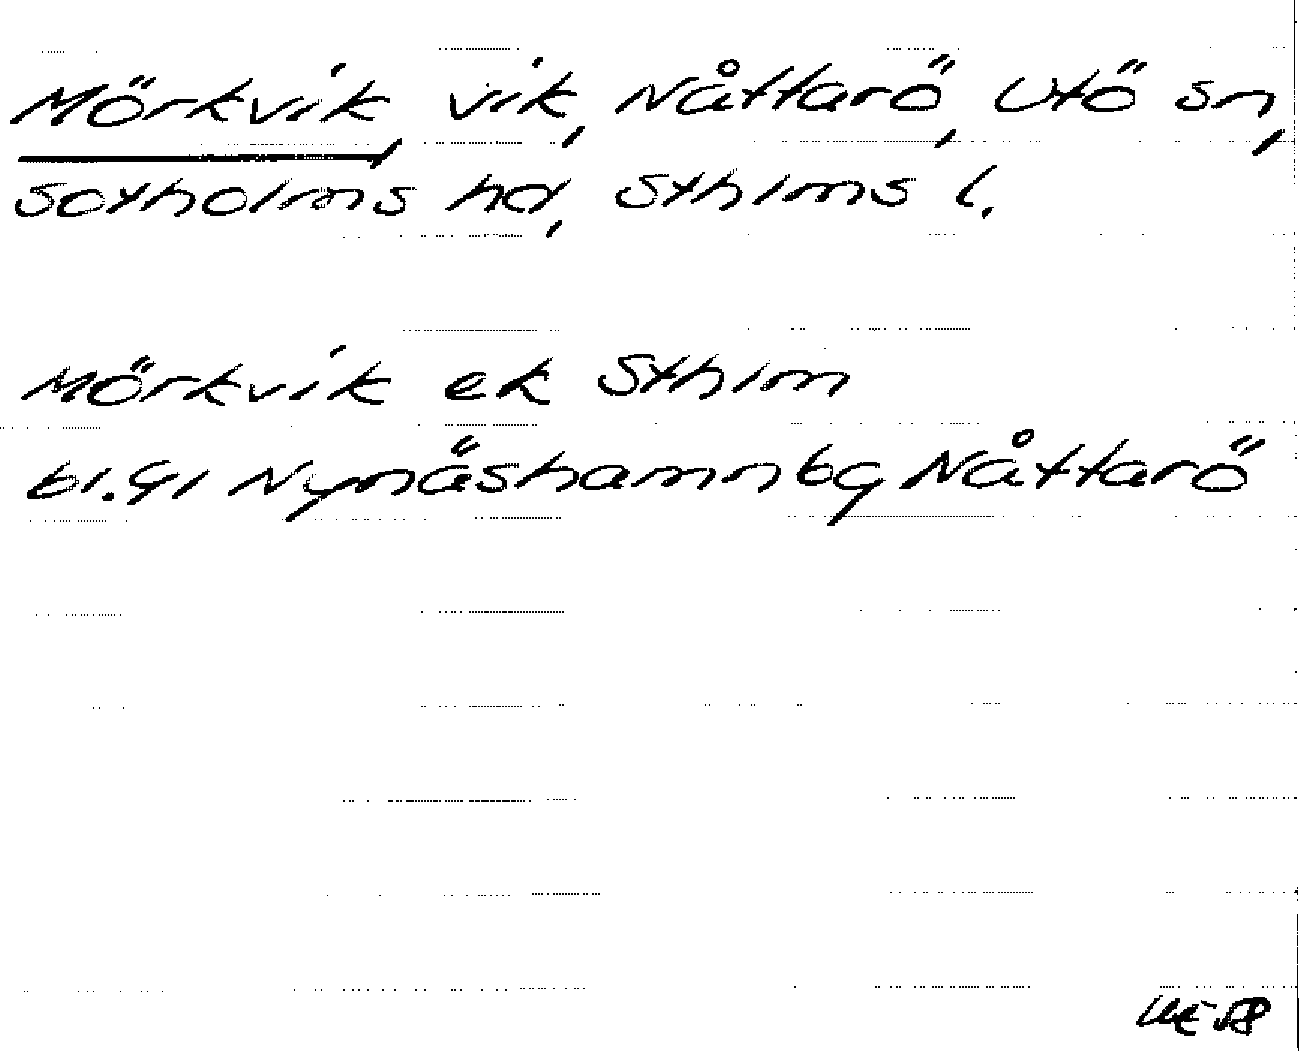 Mörkvik, vik, Nåttarö, Utö sn,
Sotholms hd, Sthlms l.
Mörkvik ek Sthlm
bl. 91 Nynäshamn bg Nåttarö